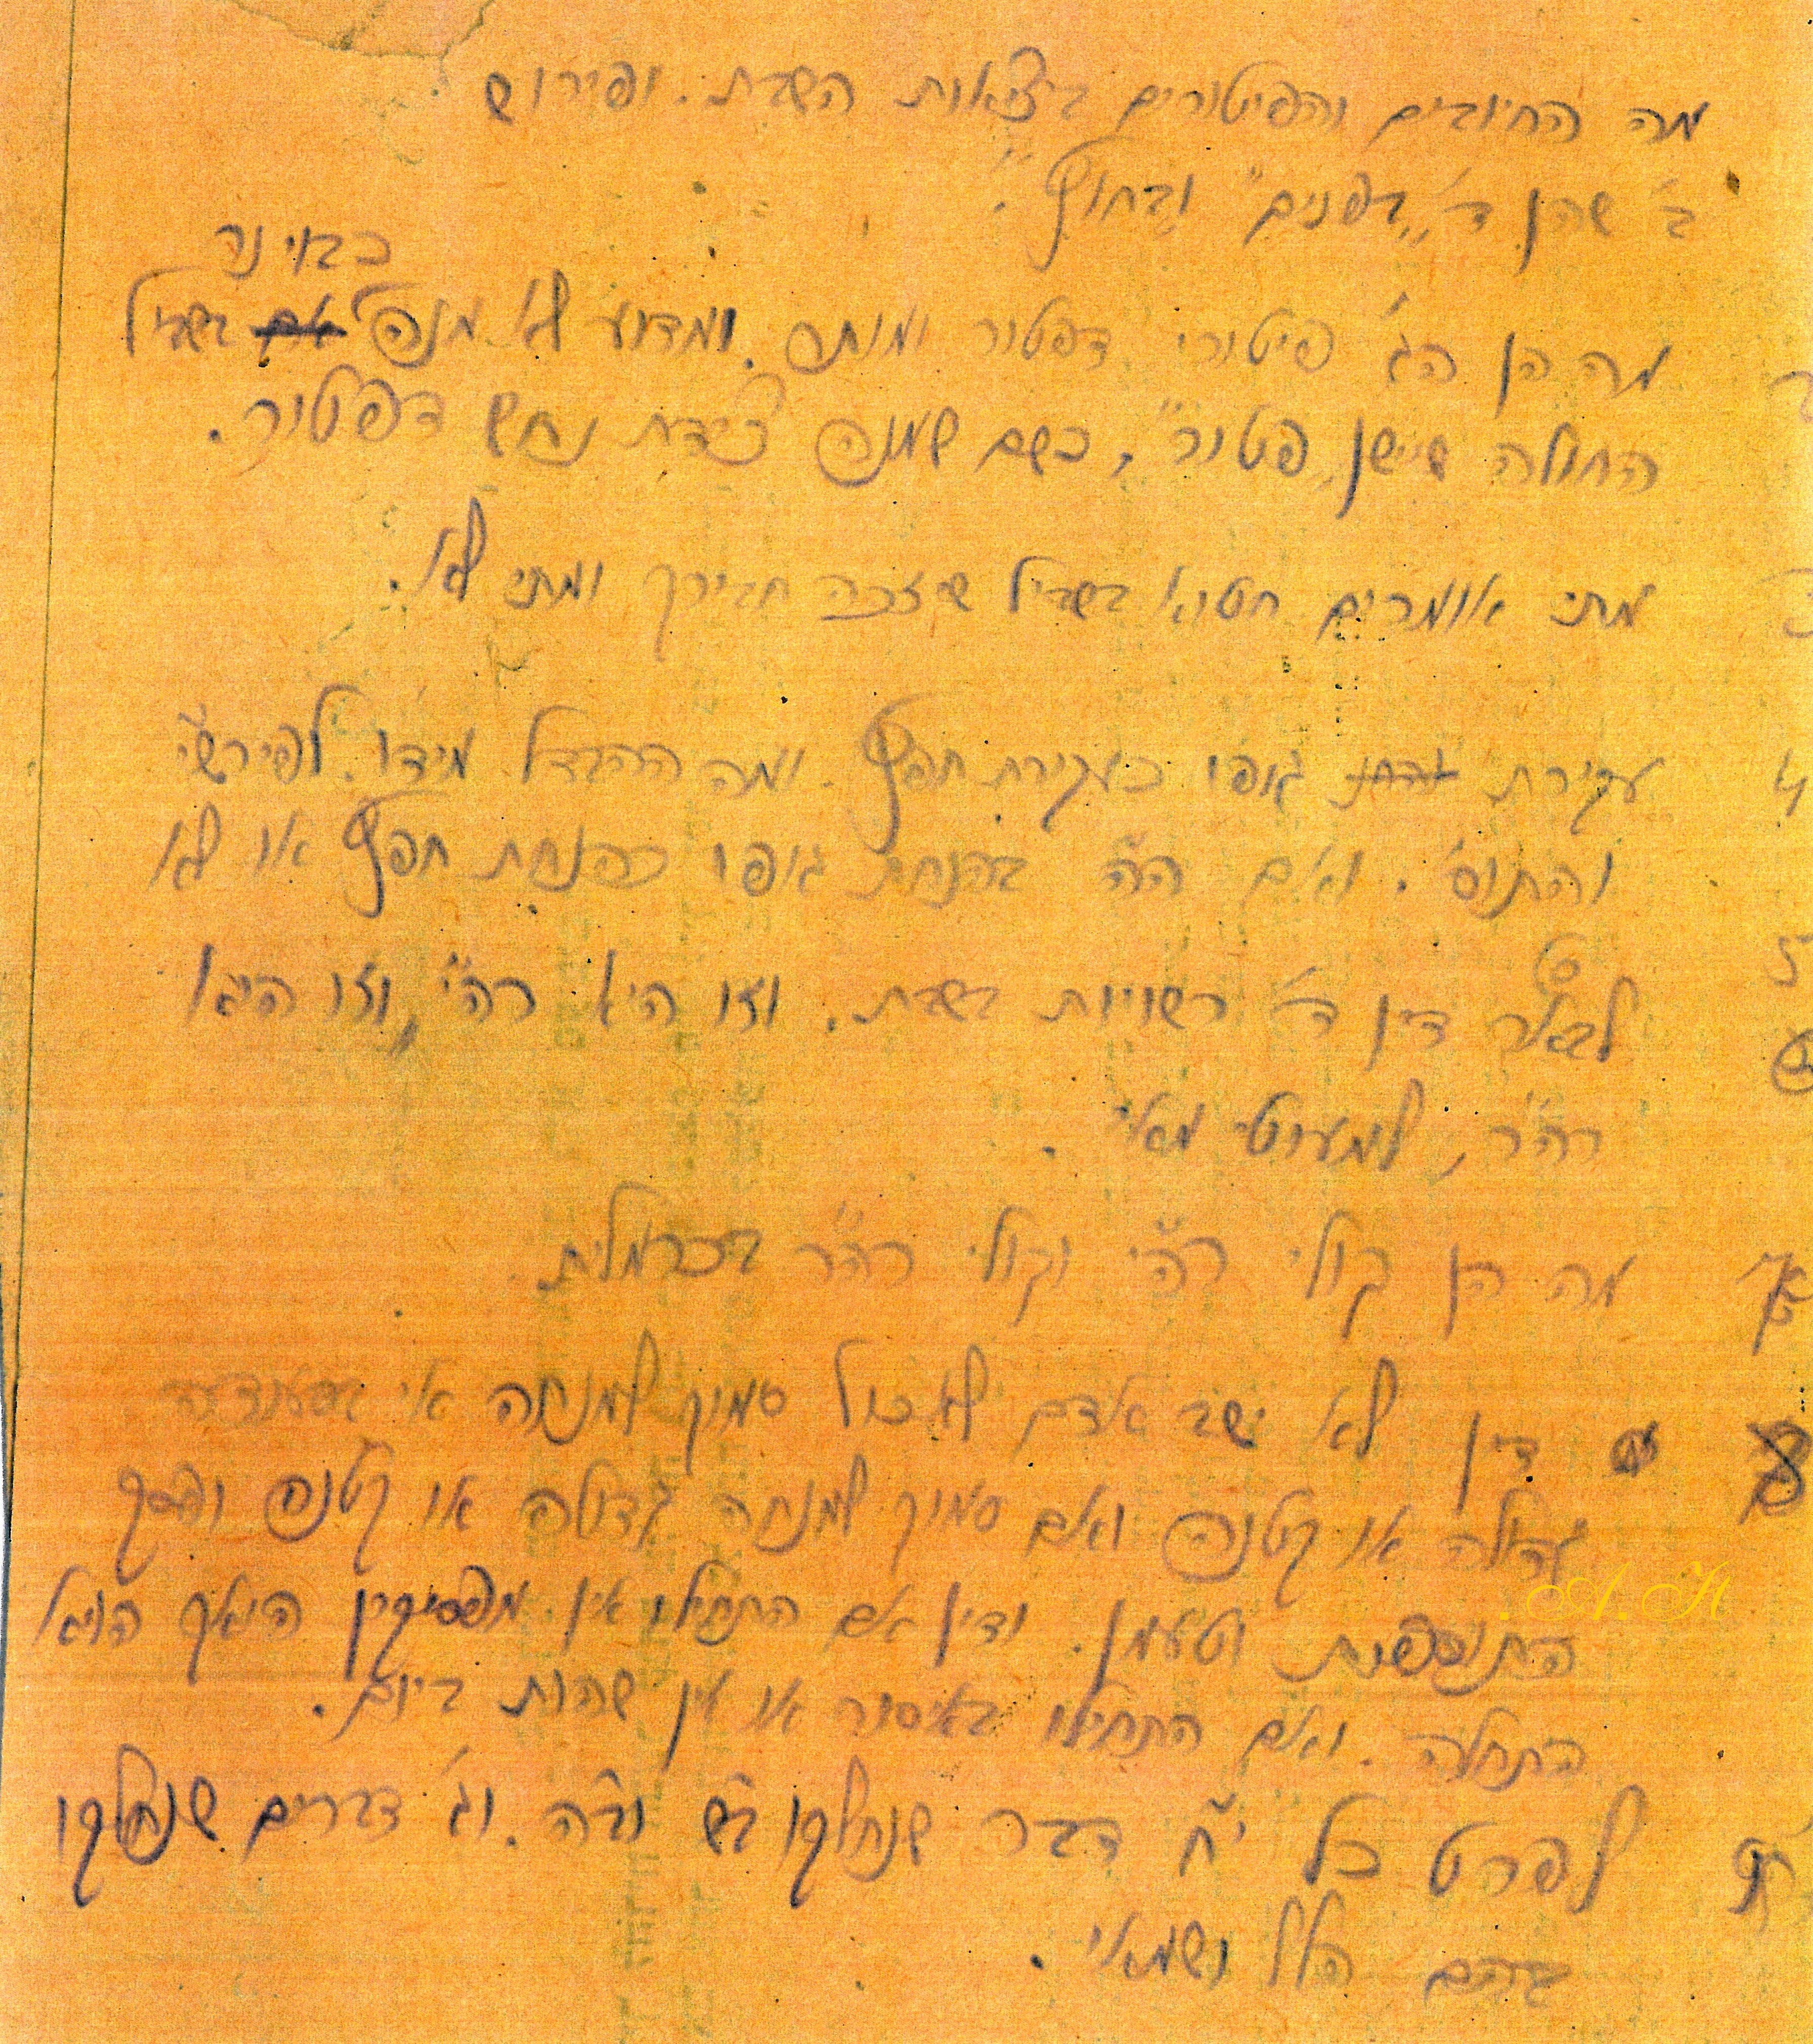 מה החיובים והפיטורים ביציאות השבת. ופירוש
ב' שהן ד' "בפנים" ובחוץ".
כבוי נר
מה הן הג' פיטורי דפטור ומותר. ומדוע לא מנה בשביל
החולה שישן "פטור", כשם שמנה צידת נחש דפטור.
מתי אומרים חטוא בשביל שזכה חבירך ומתי לא.
4 עקירת גופו כעקירת חפץ. ומה ההבדל מידו. לפירש"י
והתוס'. ואם ה"ה בהנחת גופו כהנחת חפץ או לא
5 דין ד' רשויות בשבת. וזו היא רה"י, וזו היא
רה"ר, למעוטי מאי.
מה הן קולי רה"י וקולי רה"ר בכרמלית.
דין לא ישב אדם לאכול סמוך למנחה אי
גדולה או קטנה ואם סמוך למנחה גדולה או קטנה
התוספות וטעמן. ודין אם התחילו אין מפסיקין
התחלה. ואם התחילו באיסור או אין שהות ביום.
לפרט כל י"ח דבר שנחלקו ב"ש וב"ה. וג' דברים שנחלקו
בהם הלל ושמאי.
A. H